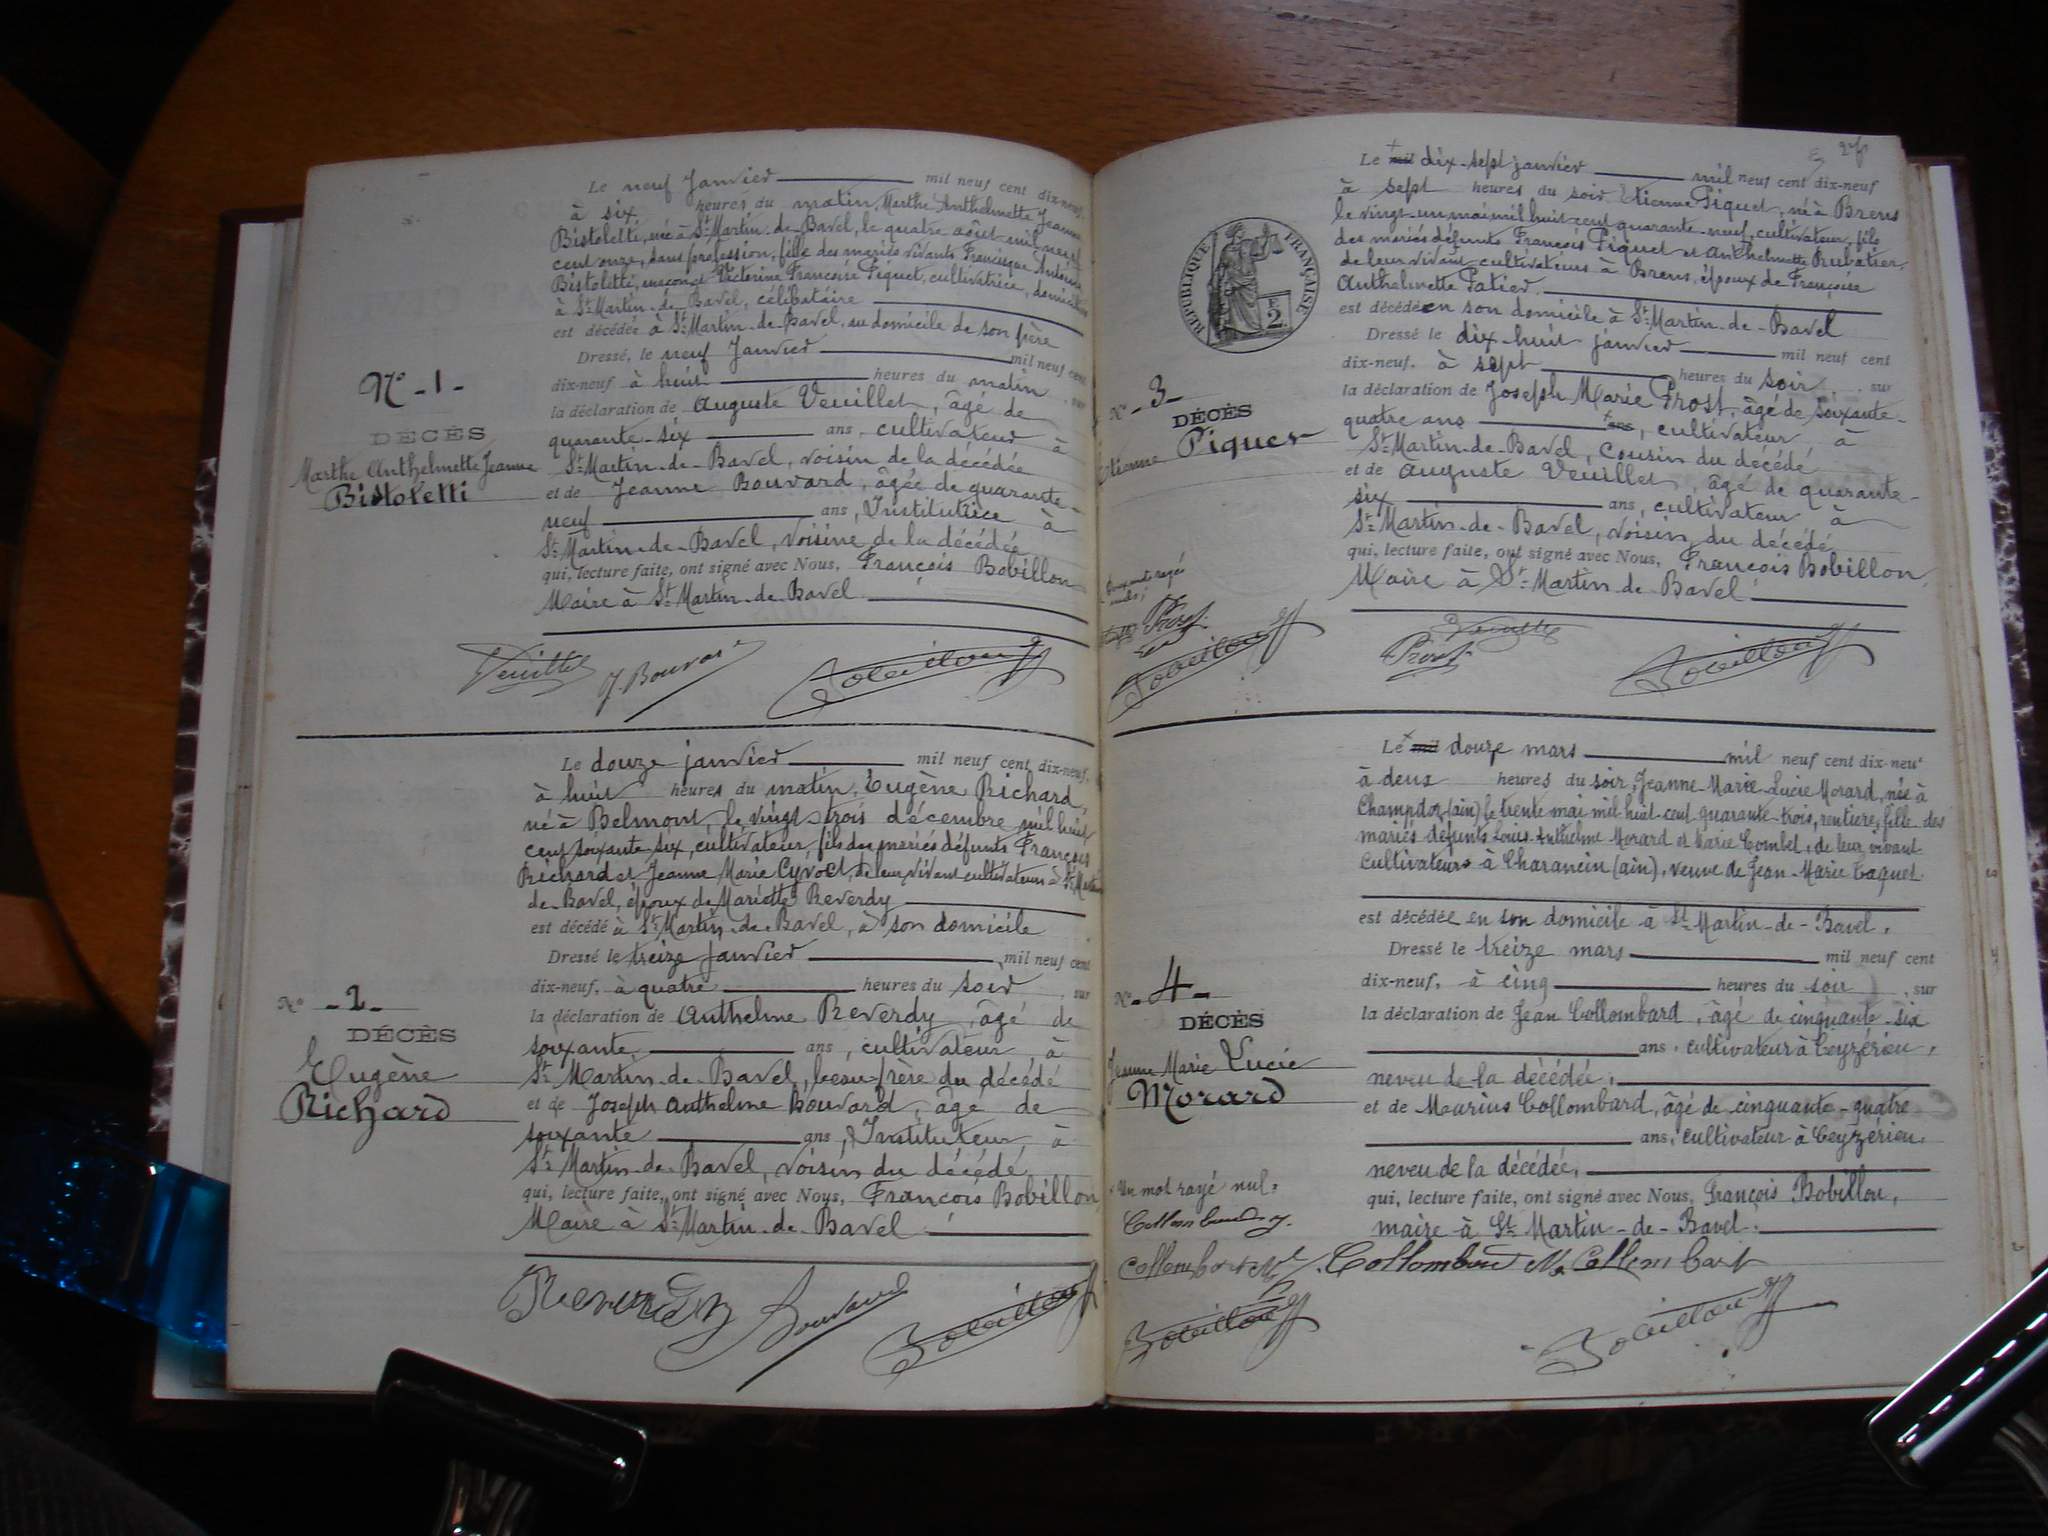 Le neuf Janvier mil neuf cent dix-neuf,
à six heures du matin, Marthe Anthelmette Jeanne
Bistoletti, née à St Martin-de-Bavel, le quatre août mil neuf
cent onze, sans profession, fille des mariés vivants Francisque Antoine
Bistoletti, maçon et Victorine Françoise Piquet, cultivatrice, domiciliés
à St Martin-de-Bavel, célibataire
est décédée à St Martin-de-Bavel, au domicile de son frère
Dressé, le neuf Janvier mil neuf cent
dix-neuf à huit heures du matin, sur
la déclaration de Auguste Veuillet, âgé de
quarante-six ans, cultivateur à
St Martin-de-Bavel, voisin de la décédée
et de Jeanne Bouvard, âgée de quarante-
neuf ans, Institutrice à
St Martin-de-Bavel, voisine de la décédée
qui, lecture faite, ont signé avec Nous, François Bobillon
Maire à St Martin-de-Bavel.
No -1-
DÉCÈS
Marthe Anthelmette Jeanne
Bistoletti
Veuillet J. Bouvard Bobillon
Le douze janvier mil neuf cent dix-neuf,
à huit heures du matin, Eugène Richard,
né à Belmont, le vingt-trois décembre mil huit
cent soixante-six, cultivateur, fils des mariés défunts François
Richard et Jeanne Marie Cyvoct, de leur vivant cultivateurs à St Martin
de-Bavel, époux de Mariette Reverdy
est décédé à St Martin-de-Bavel, à son domicile
Dressé le treize janvier mil neuf cent
dix-neuf, à quatre heures du soir, sur
la déclaration de Anthelme Reverdy, âgé de
soixante ans, cultivateur à
St Martin-de-Bavel, beau-frère du décédé
et de Joseph Anthelme Bouvard, âgé de
soixante ans, Instituteur à
St Martin-de-Bavel, voisin du décédé
qui, lecture faite, ont signé avec Nous, François Bobillon
Maire à St Martin-de-Bavel.
No -2-
DÉCÈS
Eugène
Richard
Reverdy Bouvard Bobillon
Le mil dix-sept janvier mil neuf cent dix-neuf
à sept heures du soir Etienne Piquet, né à Brens
le vingt-un mai mil huit cent quarante-neuf, cultivateur, fils
des mariés défunts François Piquet et Anthelmette Rubatier,
de leur vivant cultivateurs à Brens, époux de Françoise
Anthelmette Patier.
est décédé en son domicile à St Martin-de-Bavel
Dressé le dix-huit janvier mil neuf cent
dix-neuf, à sept heures du soir, sur
la déclaration de Joseph Marie Prost, âgé de soixante-
quatre ans ans, cultivateur à
St Martin-de-Bavel, cousin du décédé
et de Auguste Veuillet, âgé de quarante-
six ans, cultivateur à
St Martin-de-Bavel, voisin du décédé
qui, lecture faite, ont signé avec Nous, François Bobillon,
Maire à St Martin-de-Bavel.
RÉPUBLIQUE FRANÇAISE
No -3-
DÉCÈS
Etienne Piquet
rayés
nuls;
Prost
Bobillon
Veuillet
Prost Bobillon
Le mil douze mars mil neuf cent dix-neuf
à deux heures du soir, Jeanne-Marie-Lucie Morard, née à
Champdor (ain) le trente mai mil huit-cent quarante-trois, rentière, fille des
mariés défunts Louis-Anthelme Morard et Marie Combet, de leur vivant
cultivateurs à Charancin (ain), veuve de Jean-Marie Caquet
est décédée en son domicile à St Martin-de-Bavel.
Dressé le treize mars mil neuf cent
dix-neuf, à cinq heures du soir, sur
la déclaration de Jean Collombard, âgé de cinquante-six
ans, cultivateur à Ceyzérieu,
neveu de la décédée,
et de Maurius Collombard, âgé de cinquante-quatre
ans, cultivateur à Ceyzérieu.
neveu de la décédée,
qui, lecture faite, ont signé avec Nous, François Bobillon,
maire à St Martin-de-Bavel.
No -4-
DÉCÈS
Jeanne Marie Lucie
Morard
Un mot rayé nul:
Collombard J.
Collombard M J. Collombard Ms Collombard
Bobillon Bobillon